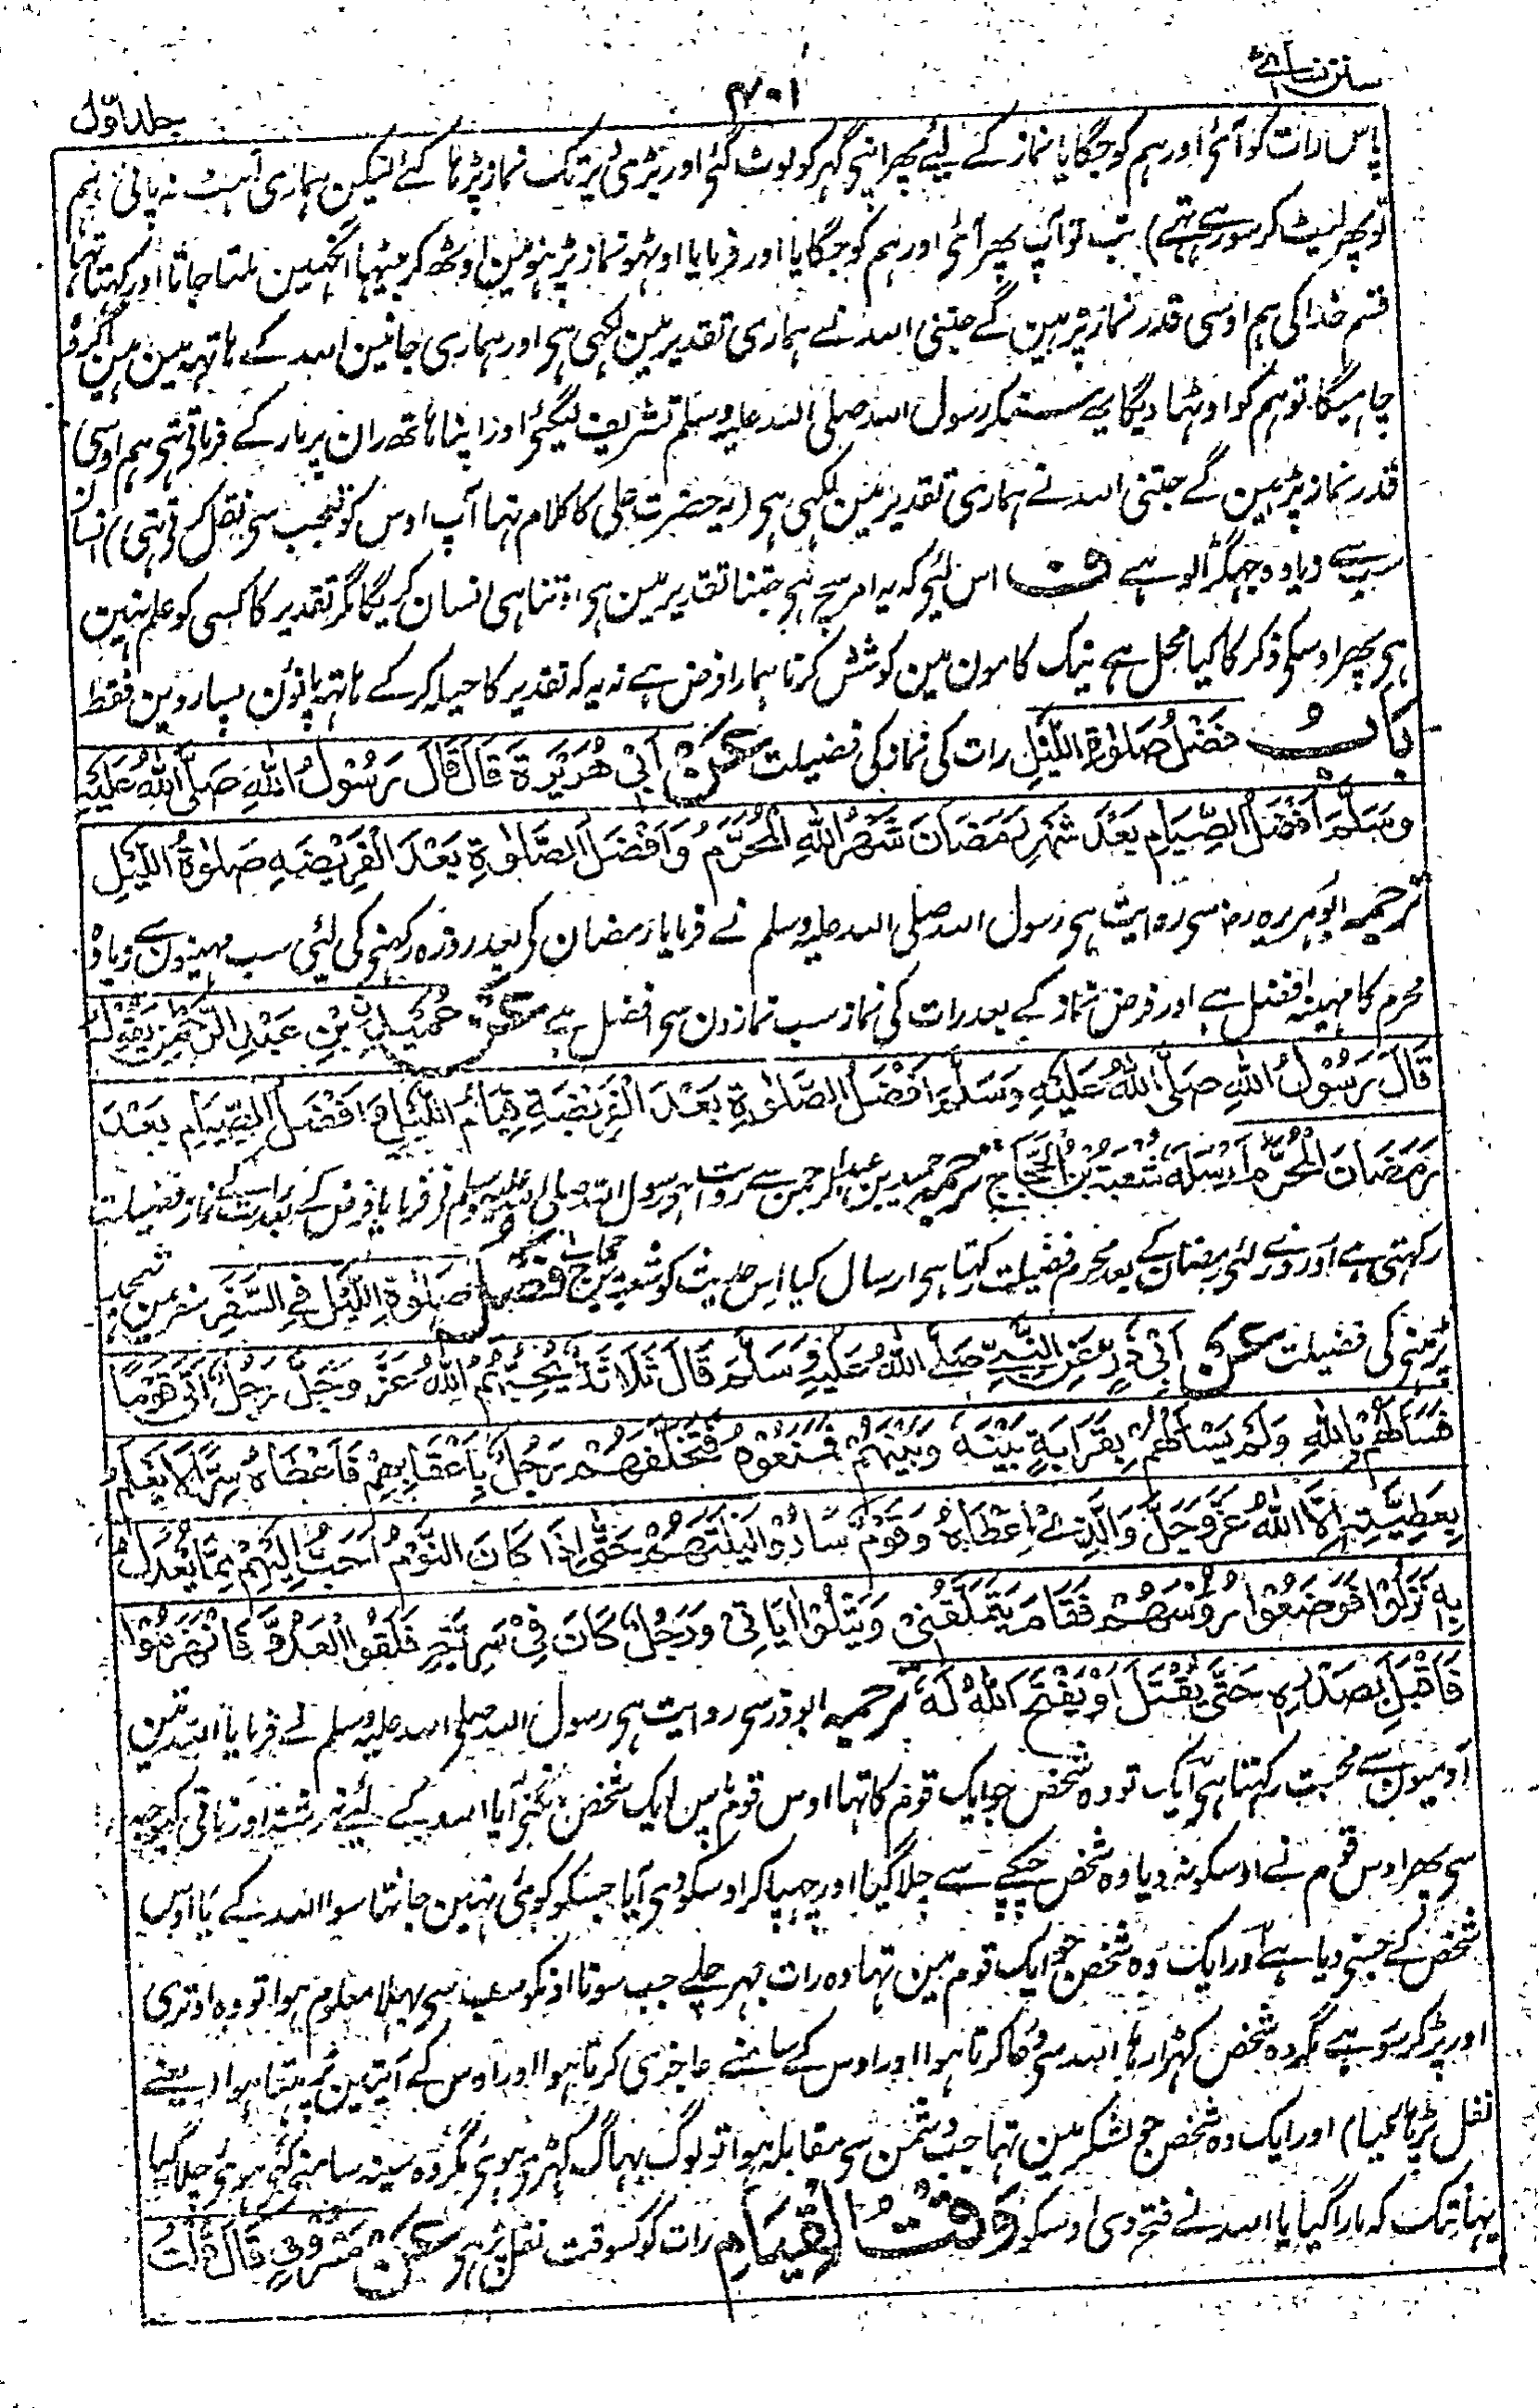 سنن نسائی
۴۰۱
جلد اوّل
پاس رات کو آئی اور ہم کو جگایا نماز کے لیے پھر اپنی گہر کو لوٹ گئی اور بڑی دیر تک نماز پڑہا کئے لیکن ہماری آہٹ نہ پائی ہم
تو پھر لیٹ کر سو رہے تہے) تب تو آپ پھر آئی اور ہم کو جگایا اور فرمایا اوٹہو نماز پڑہو مین اوٹھ کر بیٹہا آنکہین ملتا جاتا اور کہتا تہا
قسم خدا کی ہم اوسی قدر نماز پڑہین گے جتنی اللہ نے ہماری تقدیر مین لکہی ہی اور ہماری جانین اللہ کے ہاتہہ مین ہین اگر وہ
چاہیگا تو ہم کو اوٹہا دیگا یہ سنکر رسول اللہ صلی اللہ علیہ وسلم تشریف لیگئی اور اپنا ہاتھ ران پر مار کے فرماتی تہی ہم اوسی
قدر نماز پڑہین گے جتنی اللہ نے ہماری تقدیر مین لکہی ہی (یہ حضرت علی کا کلام تہا آپ اوس کو تعجب سی نقل کرتی تہی) انسان
سب سے زیادہ جہگڑالو ہے ف اس لئی کہ یہ امر سچ ہی جتنا تقدیر مین ہی اوتنا ہی انسان کریگا مگر تقدیر کا کسی کو علم نہین
ہی پھر اوسکی ذکر کا کیا محل ہے نیک کامون مین کوشش کرنا ہمارا فرض ہے نہ یہ کہ تقدیر کا حیلہ کر کے ہاتہہ پانؤن پسار دین فقط
بَابُ فَضْلِ صَلٰوةِ اللَّيْلِ رات کی نماز کی فضیلت عَنْ اَبِیْ هُرَيْرَةَ قَالَ قَالَ رَسُوْلُ اللّٰهِ صَلَّى اللّٰهُ عَلَيْهِ
وَسَلَّمَ اَفْضَلُ الصِّيَامِ بَعْدَ شَهْرِ رَمَضَانَ شَهْرُ اللّٰهِ الْمُحَرَّمُ وَاَفْضَلُ الصَّلٰوةِ بَعْدَ الْفَرِيْضَةِ صَلٰوةُ اللَّيْلِ
ترجمہ ابو ہریرہ رضہ سی روایت ہی رسول اللہ صلی اللہ علیہ وسلم نے فرمایا رمضان کی بعد روزہ رکہنی کی لئی سب مہینون سے زیادہ
محرم کا مہینہ افضل ہے اور فرض نماز کے بعد رات کی نماز سب نمازون سی افضل ہے عَنْ حُمَيْدِ بْنِ عَبْدِ الرَّحْمٰنِ يَقُوْلُ
قَالَ رَسُوْلُ اللّٰهِ صَلَّى اللّٰهُ عَلَيْهِ وَسَلَّمَ اَفْضَلُ الصَّلٰوةِ بَعْدَ الْفَرِيْضَةِ قِيَامُ اللَّيْلِ وَاَفْضَلُ الصِّيَامِ بَعْدَ
رَمَضَانَ الْمُحَرَّمُ اَرْسَلَهٗ شُعْبَةُ بْنُ الْحَجَّاجِ ترجمہ حمید بن عبد الرحمن سے روایت ہی رسول اللہ صلی اللہ علیہ وسلم نی فرمایا فرض کے بعد رات کے نماز فضیلت
رکہتی ہے اور روزے لئی رمضان کے بعد محرم فضیلت رکہتا ہی ارسال کیا اس حدیث کو شعبہ بن حجاج نے فَضْلُ صَلٰوةِ اللَّيْلِ فِی السَّفَرِ سفر مین تہجد
پڑہنی کی فضیلت عَنْ اَبِیْ ذَرٍّ عَنِ النَّبِیِّ صَلَّى اللّٰهُ عَلَيْهِ وَسَلَّمَ قَالَ ثَلَاثَةٌ يُحِبُّهُمُ اللّٰهُ عَزَّ وَجَلَّ رَجُلٌ اَتٰى قَوْمًا
فَسَاَلَهُمْ بِاللّٰهِ وَلَمْ يَسْاَلْهُمْ بِقَرَابَةٍ بَيْنَهٗ وَبَيْنَهُمْ فَمَنَعُوْهُ فَتَخَلَّفَهُمْ رَجُلٌ بِاَعْقَابِهِمْ فَاَعْطَاهُ سِرًّا لَا يَعْلَمُ
بِعَطِيَّتِهٖ اِلَّا اللّٰهُ عَزَّ وَجَلَّ وَالَّذِیْ اَعْطَاهُ وَقَوْمٌ سَارُوْا لَيْلَتَهُمْ حَتّٰى اِذَا كَانَ النَّوْمُ اَحَبَّ اِلَيْهِمْ مِمَّا يُعْدَلُ
بِهٖ نَزَلُوْا فَوَضَعُوْا رُءُوْسَهُمْ فَقَامَ يَتَمَلَّقُنِیْ وَيَتْلُوْا اٰيَاتِیْ وَرَجُلٌ كَانَ فِیْ سَرِيَّةٍ فَلَقُوا الْعَدُوَّ فَانْهَزَمُوْا
فَاَقْبَلَ بِصَدْرِهٖ حَتّٰى يُقْتَلَ اَوْ يَفْتَحَ اللّٰهُ لَهٗ ترجمہ ابو ذر سی روایت ہی رسول اللہ صلی اللہ علیہ وسلم نے فرمایا اللہ تین
آدمیون سے محبت رکہتا ہی ایک تو وہ شخص جو ایک قوم کا تہا اوس قوم پاس ایک شخص مانگنی آیا اللہ کے لیئے نہ رشتہ اور ناتی کی وجہ
سی پھر اوس قوم نے اوسکو نہ دیا وہ شخص چپکے سے چلا گیا اور چہپا کر اوسکو دی آیا جسکو کوئی نہین جانتا سوا اللہ کے یا اوس
شخص کے جسی دیا ہے اور ایک وہ شخص جو ایک قوم مین تہا وہ رات بہر چلے جب سونا اونکو سب سی بہلا معلوم ہوا تو وہ اوتری
اور پڑ کر سو رہے مگر وہ شخص کہڑا رہا اللہ سی دعا کرتا ہوا اور اوس کے سامنے عاجزی کرتا ہوا اور اوس کے آیتین پڑہتا ہوا (یعنے
نفل پڑہا کیا) اور ایک وہ شخص جو لشکر مین تہا جب دشمن سی مقابلہ ہوا تو لوگ بہاگ کہڑی ہوئی مگر وہ سینہ سامنے کئی ہوئی چلا گیا
یہانتک کہ مارا گیا یا اللہ نے فتح دی اوسکو وَقْتُ الْقِيَامِ رات کو کسوقت نفل پڑہی عَنْ مَسْرُوْقٍ قَالَ قُلْتُ